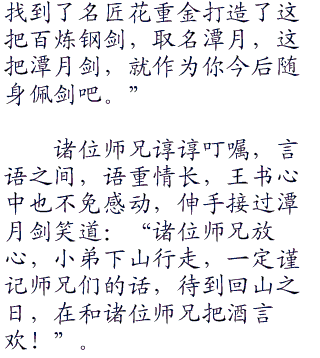 找到了名匠花重金打造了这
把百炼钢剑，取名潭月，这
把潭月剑，就作为你今后随
身佩剑吧。”
诸位师兄谆谆叮嘱，言
语之间，语重情长，王书心
中也不免感动，伸手接过潭
月剑笑道：“诸位师兄放
心，小弟下山行走，一定谨
记师兄们的话，待到回山之
日，在和诸位师兄把酒言
欢！”。